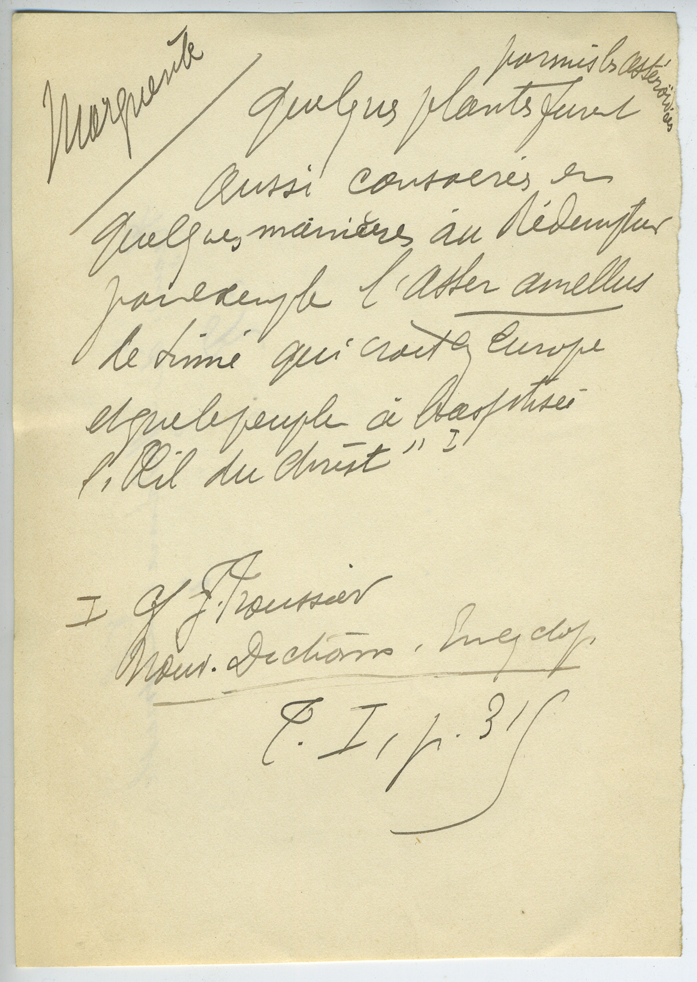 Marguerite
parmis les astéroïdes
Quelques plantes furent
aussi consacrés en
quelques manières au Rédempteur
par exemple l'Aster amellus
de Linné qui croit en Europe
et que le peuple à baptisée
l'Œil du Christ" I
I cf J. Troussier
Nouv. Dictionn. Encyclop.
T. I, p. 315